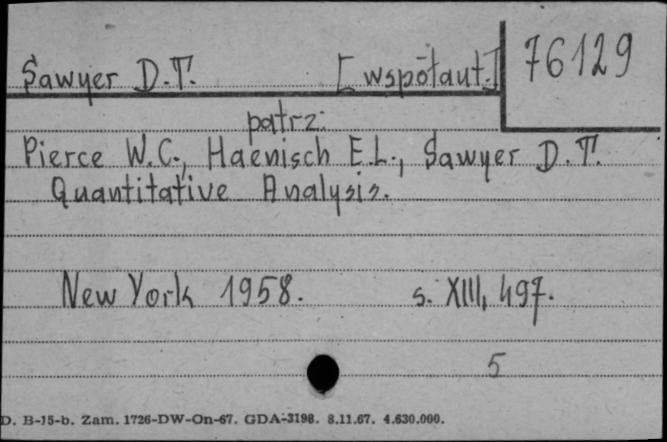 Sawyer D.T. [współaut.] 76129
patrz:
Pierce W.C., Haenisch E.L., Sawyer D.T.
Quantitative Analysis.
New York 1958. s. XIII, 497.
5
D. B-15-b. Zam. 1726-DW-On-67. GDA-3198. 8.11.67. 4.630.000.